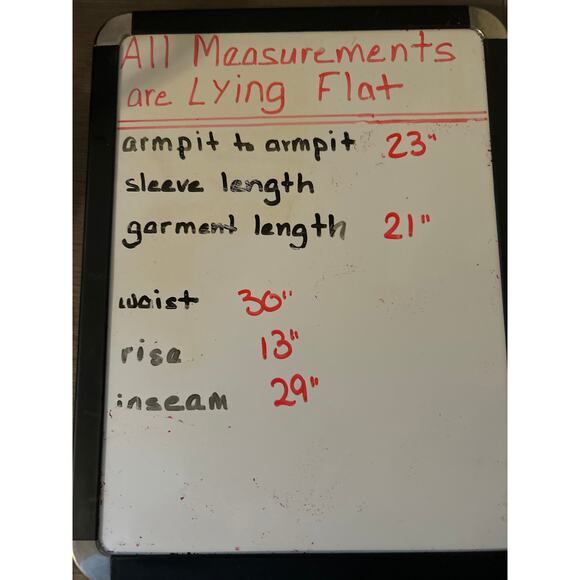 All Measurements
are Lying Flat
armpit to armpit 23"
sleeve length
garment length 21"
waist 30"
rise 13"
inseam 29"